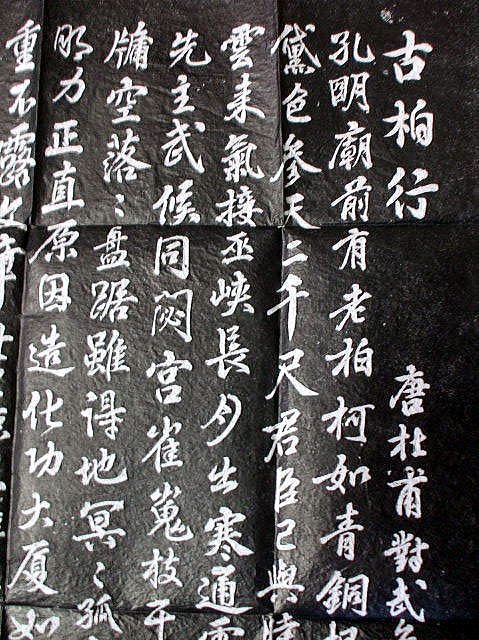 古柏行 唐杜甫對武
孔明廟前有老柏柯如青銅
黛色參天二千尺君臣已與
雲來氣接巫峽長月出寒通雪
先主武候同閟宮崔嵬枝干
牖空落〻盤踞雖得地冥〻孤
明力正直原因造化功大厦如
重不露文章世